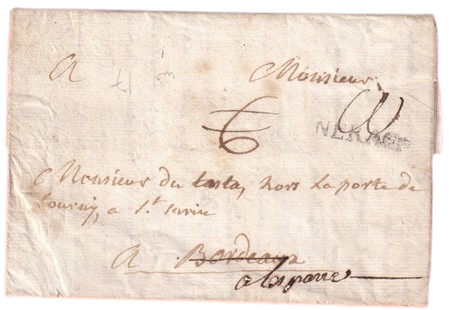 A Monsieur
6
NERAC
Monsieur du tasta, hors la porte de
tourny, a St. surin
A Bordeaux
a lesparre